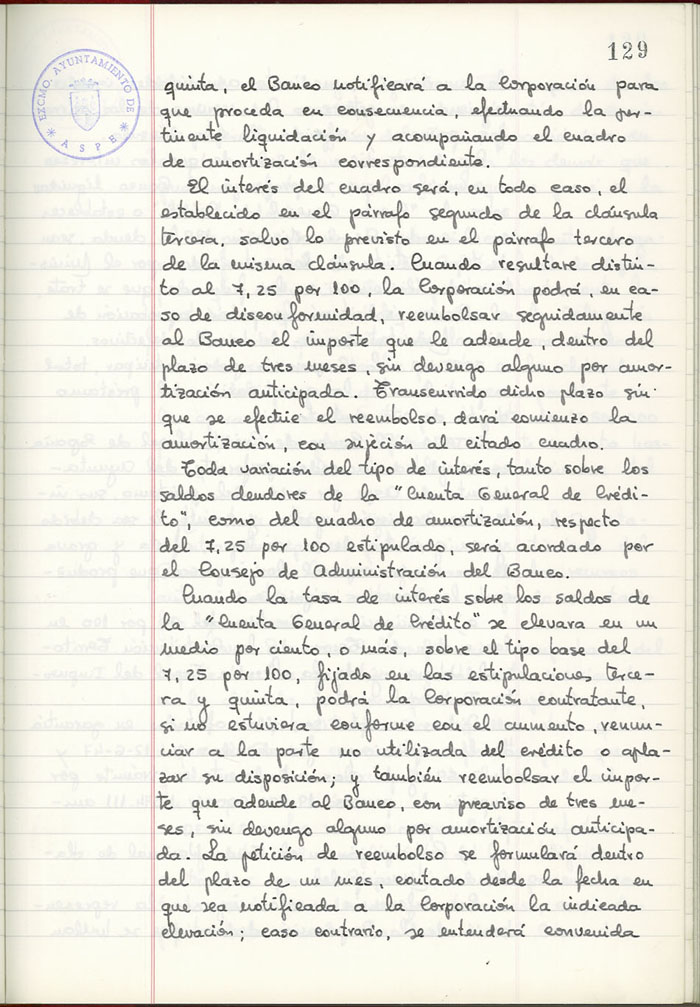 129
EXCMO. AYUNTAMIENTO DE
* ASPE *
quinta, el Banco notificará a la Corporación para
que proceda en consecuencia, efectuando la per-
tinente liquidación y acompañando el cuadro
de amortización correspondiente.
El interés del cuadro será, en todo caso, el
establecido en el párrafo segundo de la cláusula
tercera, salvo lo previsto en el párrafo tercero
de la misma cláusula. Cuando resultare distin-
to al 7,25 por 100, la Corporación podrá, en ca-
so de disconformidad, reembolsar seguidamente
al Banco el importe que le adeude, dentro del
plazo de tres meses, sin devengo alguno por amor-
tización anticipada. Transcurrido dicho plazo sin
que se efectúe el reembolso, dará comienzo la
amortización, con sujeción al citado cuadro.
Toda variación del tipo de interés, tanto sobre los
saldos deudores de la "Cuenta General de Crédi-
to", como del cuadro de amortización, respecto
del 7,25 por 100 estipulado, será acordado por
el Consejo de Administración del Banco.
Cuando la tasa de interés sobre los saldos de
la "Cuenta General de Crédito" se elevara en un
medio por ciento, o más, sobre el tipo base del
7,25 por 100, fijado en las estipulaciones terce-
ra y quinta, podrá la Corporación contratante,
si no estuviera conforme con el aumento, renun-
ciar a la parte no utilizada del crédito o apla-
zar su disposición; y también reembolsar el impor-
te que adeude al Banco, con preaviso de tres me-
ses, sin devengo alguno por amortización anticipa-
da. La petición de reembolso se formulará dentro
del plazo de un mes, contado desde la fecha en
que sea notificada a la Corporación la indicada
elevación; caso contrario, se entenderá convenida